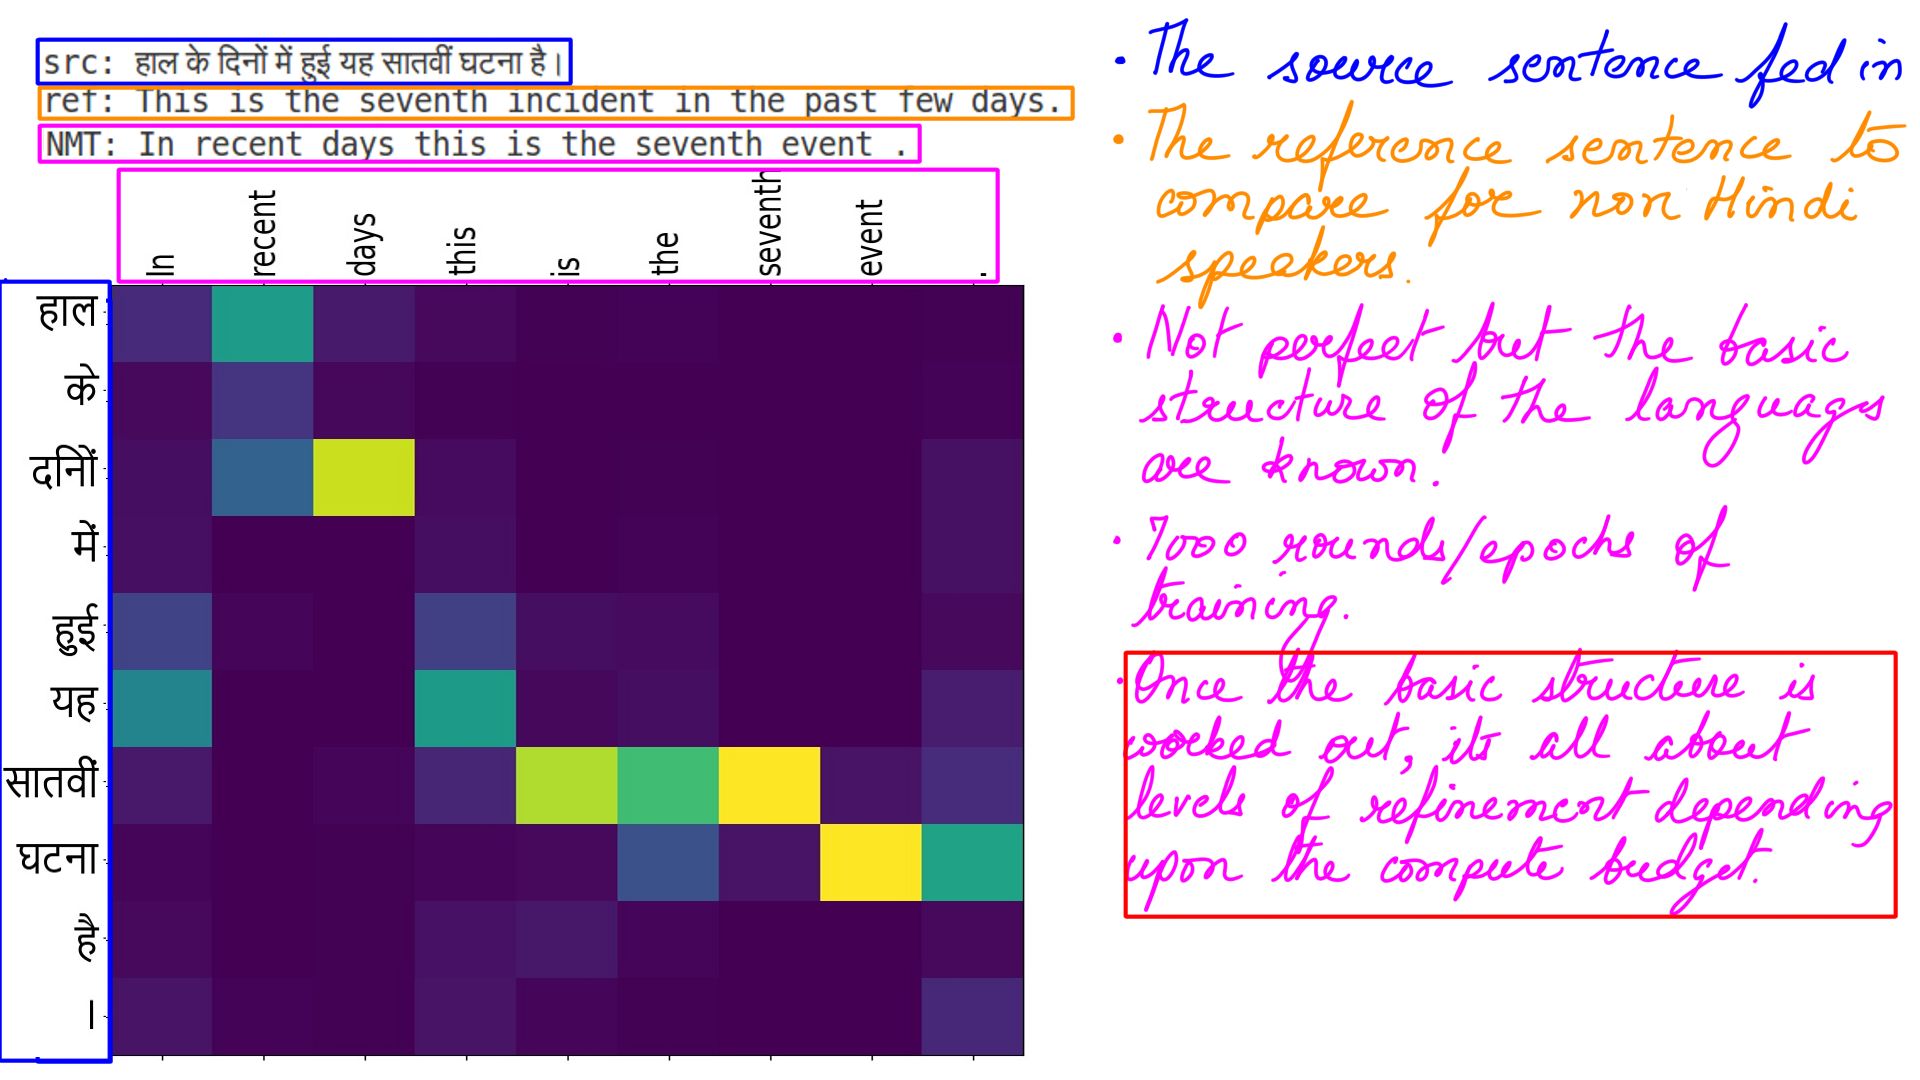 src: हाल के दिनों में हुई यह सातवीं घटना है।
ref: This is the seventh incident in the past few days.
NMT: In recent days this is the seventh event .
In recent days this is the seventh event .
हाल
के
दिनों
में
हुई
यह
सातवीं
घटना
है
।
· The source sentence fed in
· The reference sentence to
compare for non Hindi
speakers.
· Not perfect but the basic
structure of the languages
are known.
· 7000 rounds/epochs of
training.
· Once the basic structure is
worked out, its all about
levels of refinement depending
upon the compute budget.